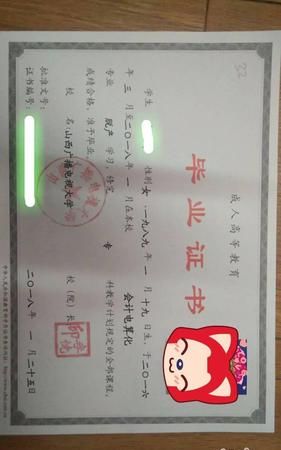 32
成人高等教育
毕业证书
学生 性别 女，一九八九年 一 月 十九 日生，于二〇一六
年 三 月至二〇一八年 一 月在本校 会计电算化
专业 脱产 学习，修完 专 科教学计划规定的全部课程，
成绩合格，准予毕业。
校 名：山西广播电视大学 校（院）长
批准文号：
证书编号： 二〇一八年 一 月 二十五日